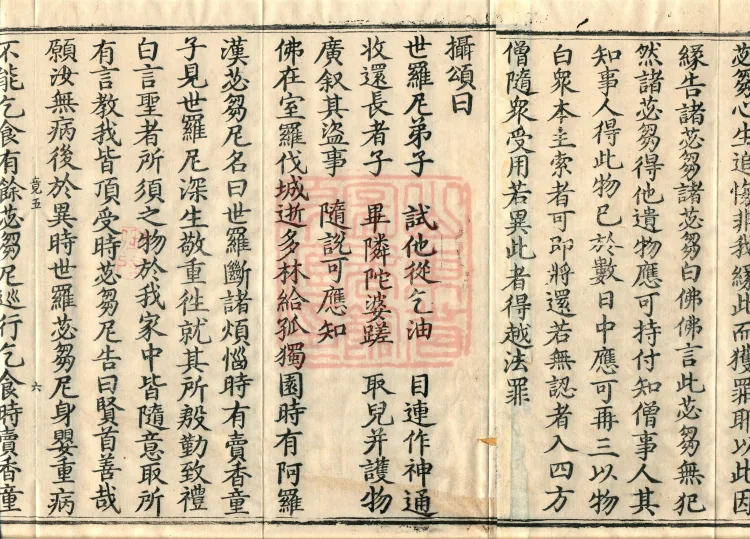 苾芻心生追悔非我緣此而獲罪耶以此因
緣告諸苾芻諸苾芻白佛佛言此苾芻無犯
然諸苾芻得他遺物應可持付知僧事人其
知事人得此物已於數日中應可再三以物
白衆本主索者可即將還若無認者入四方
僧隨衆受用若異此者得越法罪
攝頌曰
世羅尼弟子 試他從乞油 目連作神通
收還長者子 畢隣陀婆蹉 取兒并護物
廣叙其盜事 隨說可應知
佛在室羅伐城逝多林給孤獨園時有阿羅
漢苾芻尼名曰世羅斷諸煩惱時有賣香童
子見世羅尼深生敬重徃就其所殷勤致禮
白言聖者所須之物於我家中皆隨意取所
有言教我皆頂受時苾芻尼告曰賢首善哉
願汝無病後於異時世羅苾芻尼身嬰重病
竟五 六
不能乞食有餘苾芻尼巡行乞食時賣香童